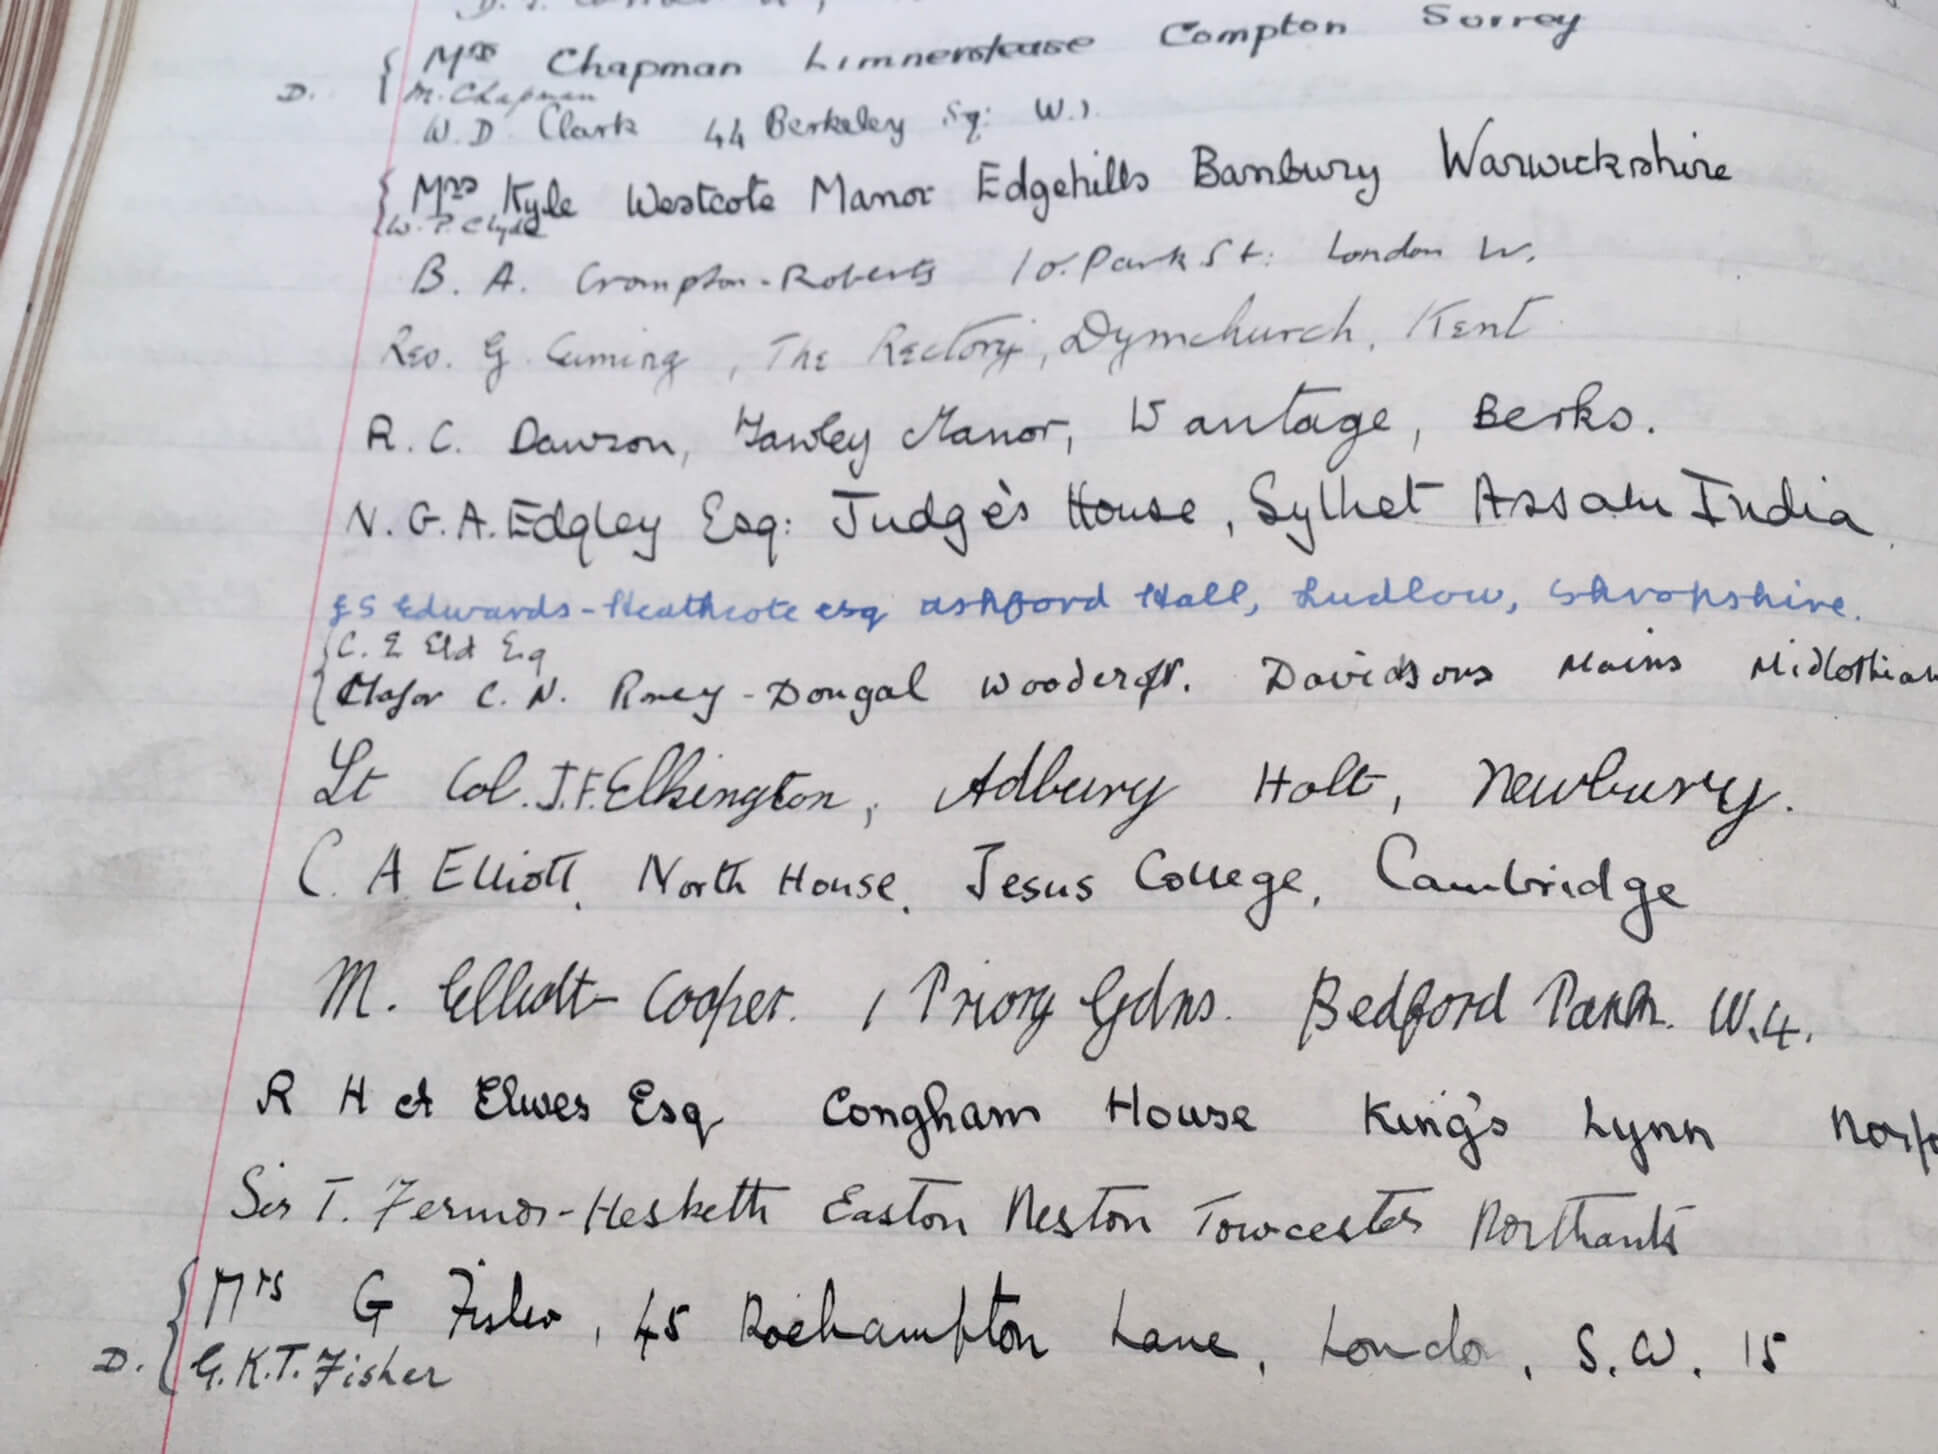 D. { Mrs Chapman Limnerslease Compton Surrey
M. Chapman
W. D. Clark 44 Berkeley Sq: W.1.
{ Mrs Kyle Westcote Manor Edgehills Banbury Warwickshire
W. P. Clyde
B. A. Crompton-Roberts 10. Park St: London W.
Rev. G. Cuming, The Rectory, Dymchurch, Kent
R. C. Dawson, Fawley Manor, Wantage, Berks.
N. G. A. Edgley Esq: Judge's House, Sylhet Assam India.
E S Edwards-Heathcote esq ashford Hall, Ludlow, Shropshire.
{ C. E Eld Esq
Major C. N. Dougal Woodcroft. Davidsons Mains Midlothian
Lt Col. J.F. Elkington, Adbury Holt, Newbury.
C. A Elliott, North House, Jesus College, Cambridge
M. Elliott-Cooper. 1 Priory Gdns. Bedford Park. W.4.
R H A Elwes Esq Congham House King's Lynn Norfo
Sir T. Fermor-Hesketh Easton Neston Towcester Northants
D. { Mrs G Fisher, 45 Roehampton Lane, London, S.W. 15
G.K.T. Fisher